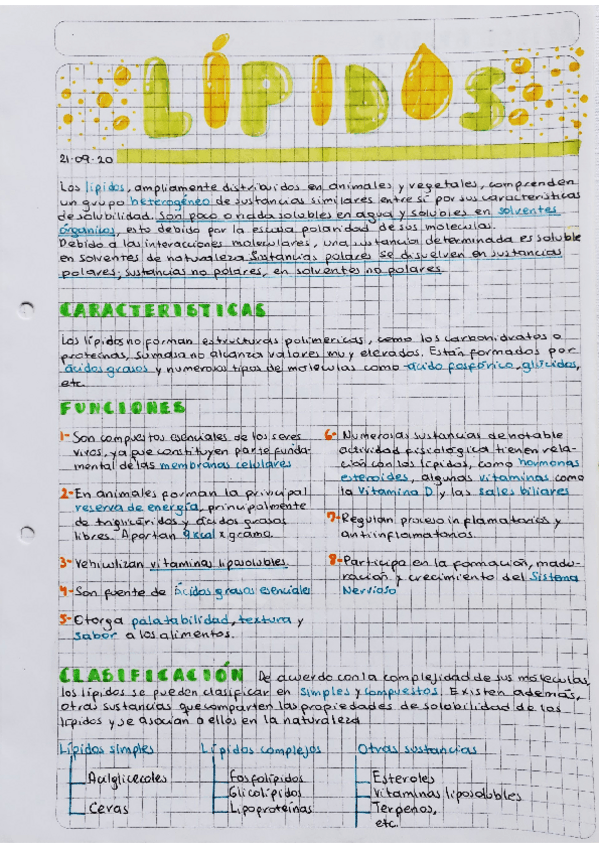 LÍPIDOS
21-09-20
Los lípidos, ampliamente distribuidos en animales y vegetales, comprenden
un grupo heterogéneo de sustancias similares entre sí por sus características
de solubilidad. Son poco o nada solubles en agua y solubles en solventes
órganicos, esto debido por la escasa polaridad de sus moleculas.
Debido a las interacciones moleculares, una sustancia determinada es soluble
en solventes de naturaleza. Sustancias polares se disuelven en sustancias
polares; sustancias no polares, en solventes no polares.
CARACTERISTICAS
Los lípidos no forman estructuras polimericas, como los carbohidratos o
proteinas, su masa no alcanza valores muy elevados. Están formados por
ácidos grasos y numerosos tipos de moleculas como ácido fosfórico, glúcidos,
etc.
FUNCIONES
1- Son compuestos esenciales de los seres
vivos, ya que constituyen parte funda-
mental de las membranas celulares
2- En animales forman la principal
reserva de energía, principalmente
de trigliceridos y ácidos grasos
libres. Aportan 9kcal x gramo.
3- Vehiculizan vitaminas liposolubles.
4- Son fuente de ácidos grasos esenciales
5- Otorga palatabilidad, textura y
sabor a los alimentos.
6- Numerosas sustancias de notable
actividad fisiologica tienen rela-
ción con los lípidos, como hormonas
esteroides, algunas vitaminas como
la vitamina D y las sales biliares
7- Regulan proceso inflamatorios y
antiinflamatorios.
8- Participa en la formación, madu-
ración y crecimiento del Sistema
Nervioso
CLASIFICACIÓN De acuerdo con la complejidad de sus moleculas,
los lípidos se pueden clasificar en simples y compuestos. Existen además,
otras sustancias que comparten las propiedades de solubilidad de los
lípidos y se asocian a ellos en la naturaleza
Lípidos simples
Acilgliceroles
Ceras
Lípidos complejos
Fosfolípidos
Glicolípidos
Lipoproteínas
Otras sustancias
Esteroles
Vitaminas liposolubles
Terpenos,
etc.